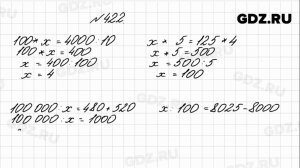 GDZ.RU
№422
100 * x = 4000 : 10
100 * x = 400
x = 400 : 100
x = 4
x * 5 = 125 * 4
x * 5 = 500
x = 500 : 5
x = 100
100 000 : x = 480 + 520
100 000 : x = 1000
x : 100 = 8025 - 8000